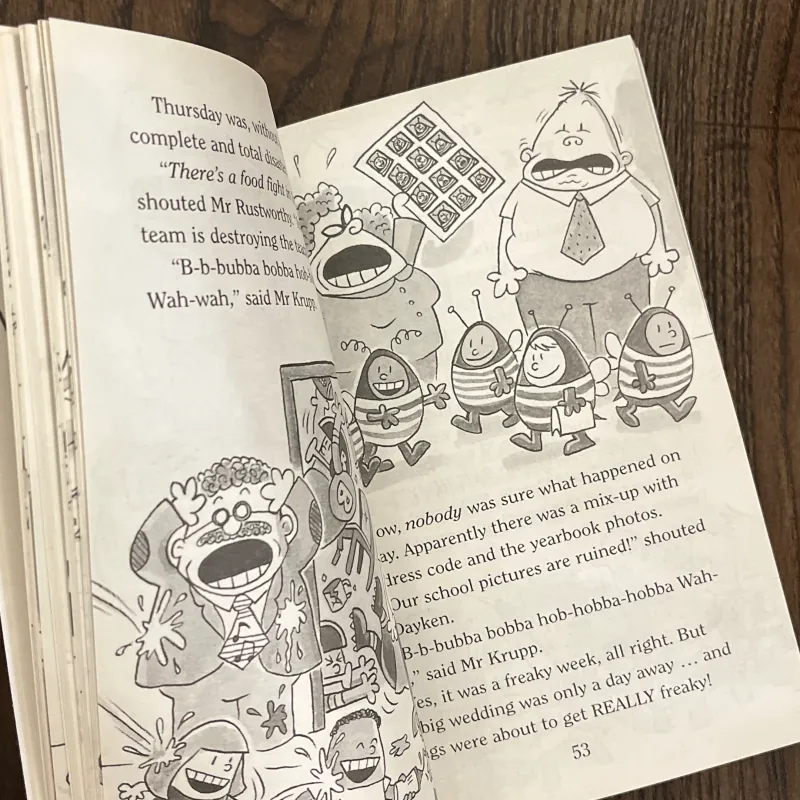 Thursday was, without
complete and total
"There's a food fight
shouted Mr Rustworthy.
team is destroying the
"B-b-bubba bobba
Wah-wah," said Mr Krupp.
ow, nobody was sure what happened on
ay. Apparently there was a mix-up with
dress code and the yearbook photos.
Our school pictures are ruined!" shouted
Dayken.
B-b-bubba bobba hob-hobba-hobba Wah-
," said Mr Krupp.
es, it was a freaky week, all right. But
big wedding was only a day away ... and
gs were about to get REALLY freaky!
53